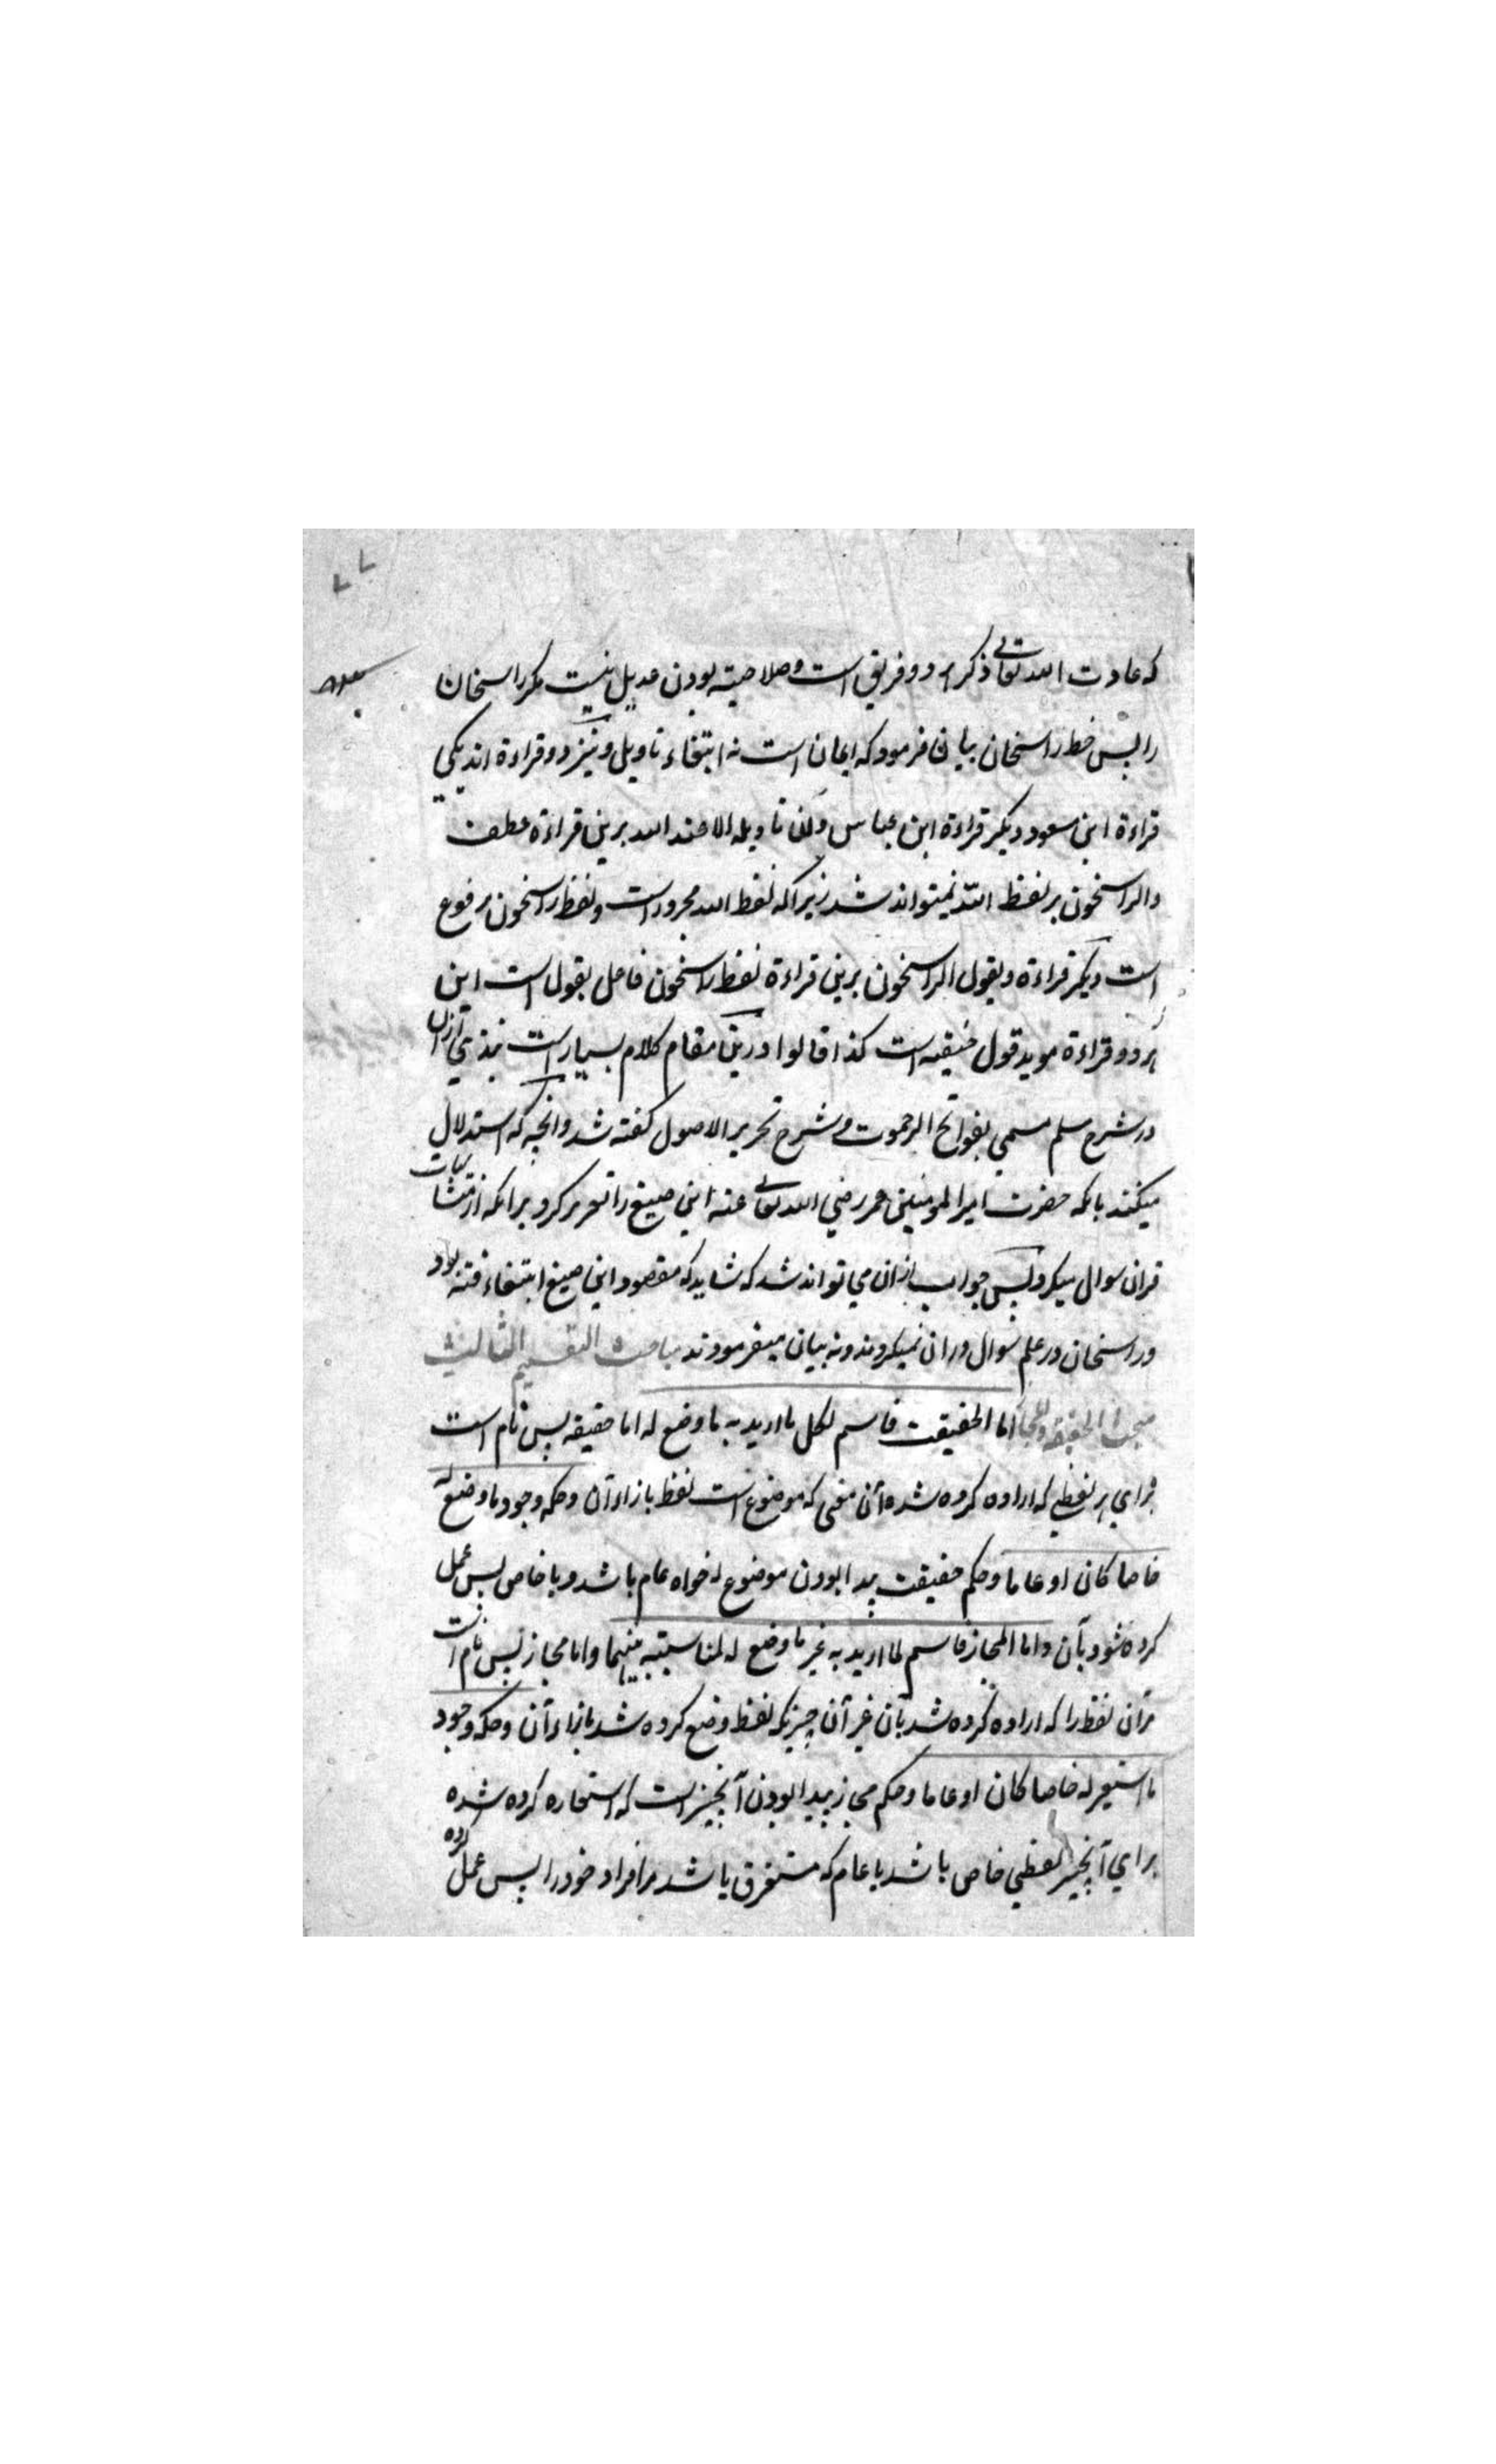 ۷۷
که عادت الله تعالی ذکر هر دو فریق است و صلاحیته بودن عدیل نیست مگر راسخان
را پس خط راسخان بیان فرمود که ایمان است نه ابتغاء تاویل و نیز دو قراءة اند یکی
قراءة ابن مسعود دیگر قراءة ابن عباس وان تاویله الا عند الله برین قراءة عطف
والراسخون بر لفظ الله نمیتواند شد زیرا که لفظ الله مجرور است و لفظ راسخون مرفوع
است دیگر قراءة ویقول الراسخون برین قراءة لفظ راسخون فاعل یقول است این
هر دو قراءة موید قول حنیفه است کذا قالوا درین مقام کلام بسیار است نبذی ازان
در شرح مسلم مسمی بفواتح الرحموت و شرح تحریر الاصول گفته شد و آنچه که استدلال
میکنند بانکه حضرت امیر المومنین عمر رضی الله تعالی عنه ابن صبیغ را تعزیر کرد برانکه از متشابهات
قران سوال میکرد پس جواب ازان می تواند شد که شاید که مقصود ابن صبیغ ابتغاء فتنه بود
و راسخان در علم سوال دران نمیکردند و نه بیان میفرمودند مباحث التقسیم الثالث
مبحث الحقیقة والمجاز اما الحقیقت فاسم لکل ما ارید به ما وضع له اما حقیقه پس نام است
برای هر لفظی که اراده کرده شده آن معنی که موضوع است لفظ بازاء آن وحکمه وجود ما وضع له
خاصا کان او عاما و حکم حقیقت پیدا بودن موضوع له خواه عام باشد و یا خاص پس عمل
کرده شود بآن واما المجاز فاسم لما ارید به غیر ما وضع له لمناسبته بینهما و اما مجاز پس نام است
مرآن لفظ را که اراده کرده شد بآن غیر آن چیزیکه لفظ وضع کرده شد بازاء آن وحکمه وجود
ما استعیر له خاصا کان او عاما و حکم مجاز پیدا بودن آنچیز است که استعاره کرده شده
برای آنچیز لفظی خاص باشد یا عام که مستغرق باشد مر افراد خود را پس عمل کرده